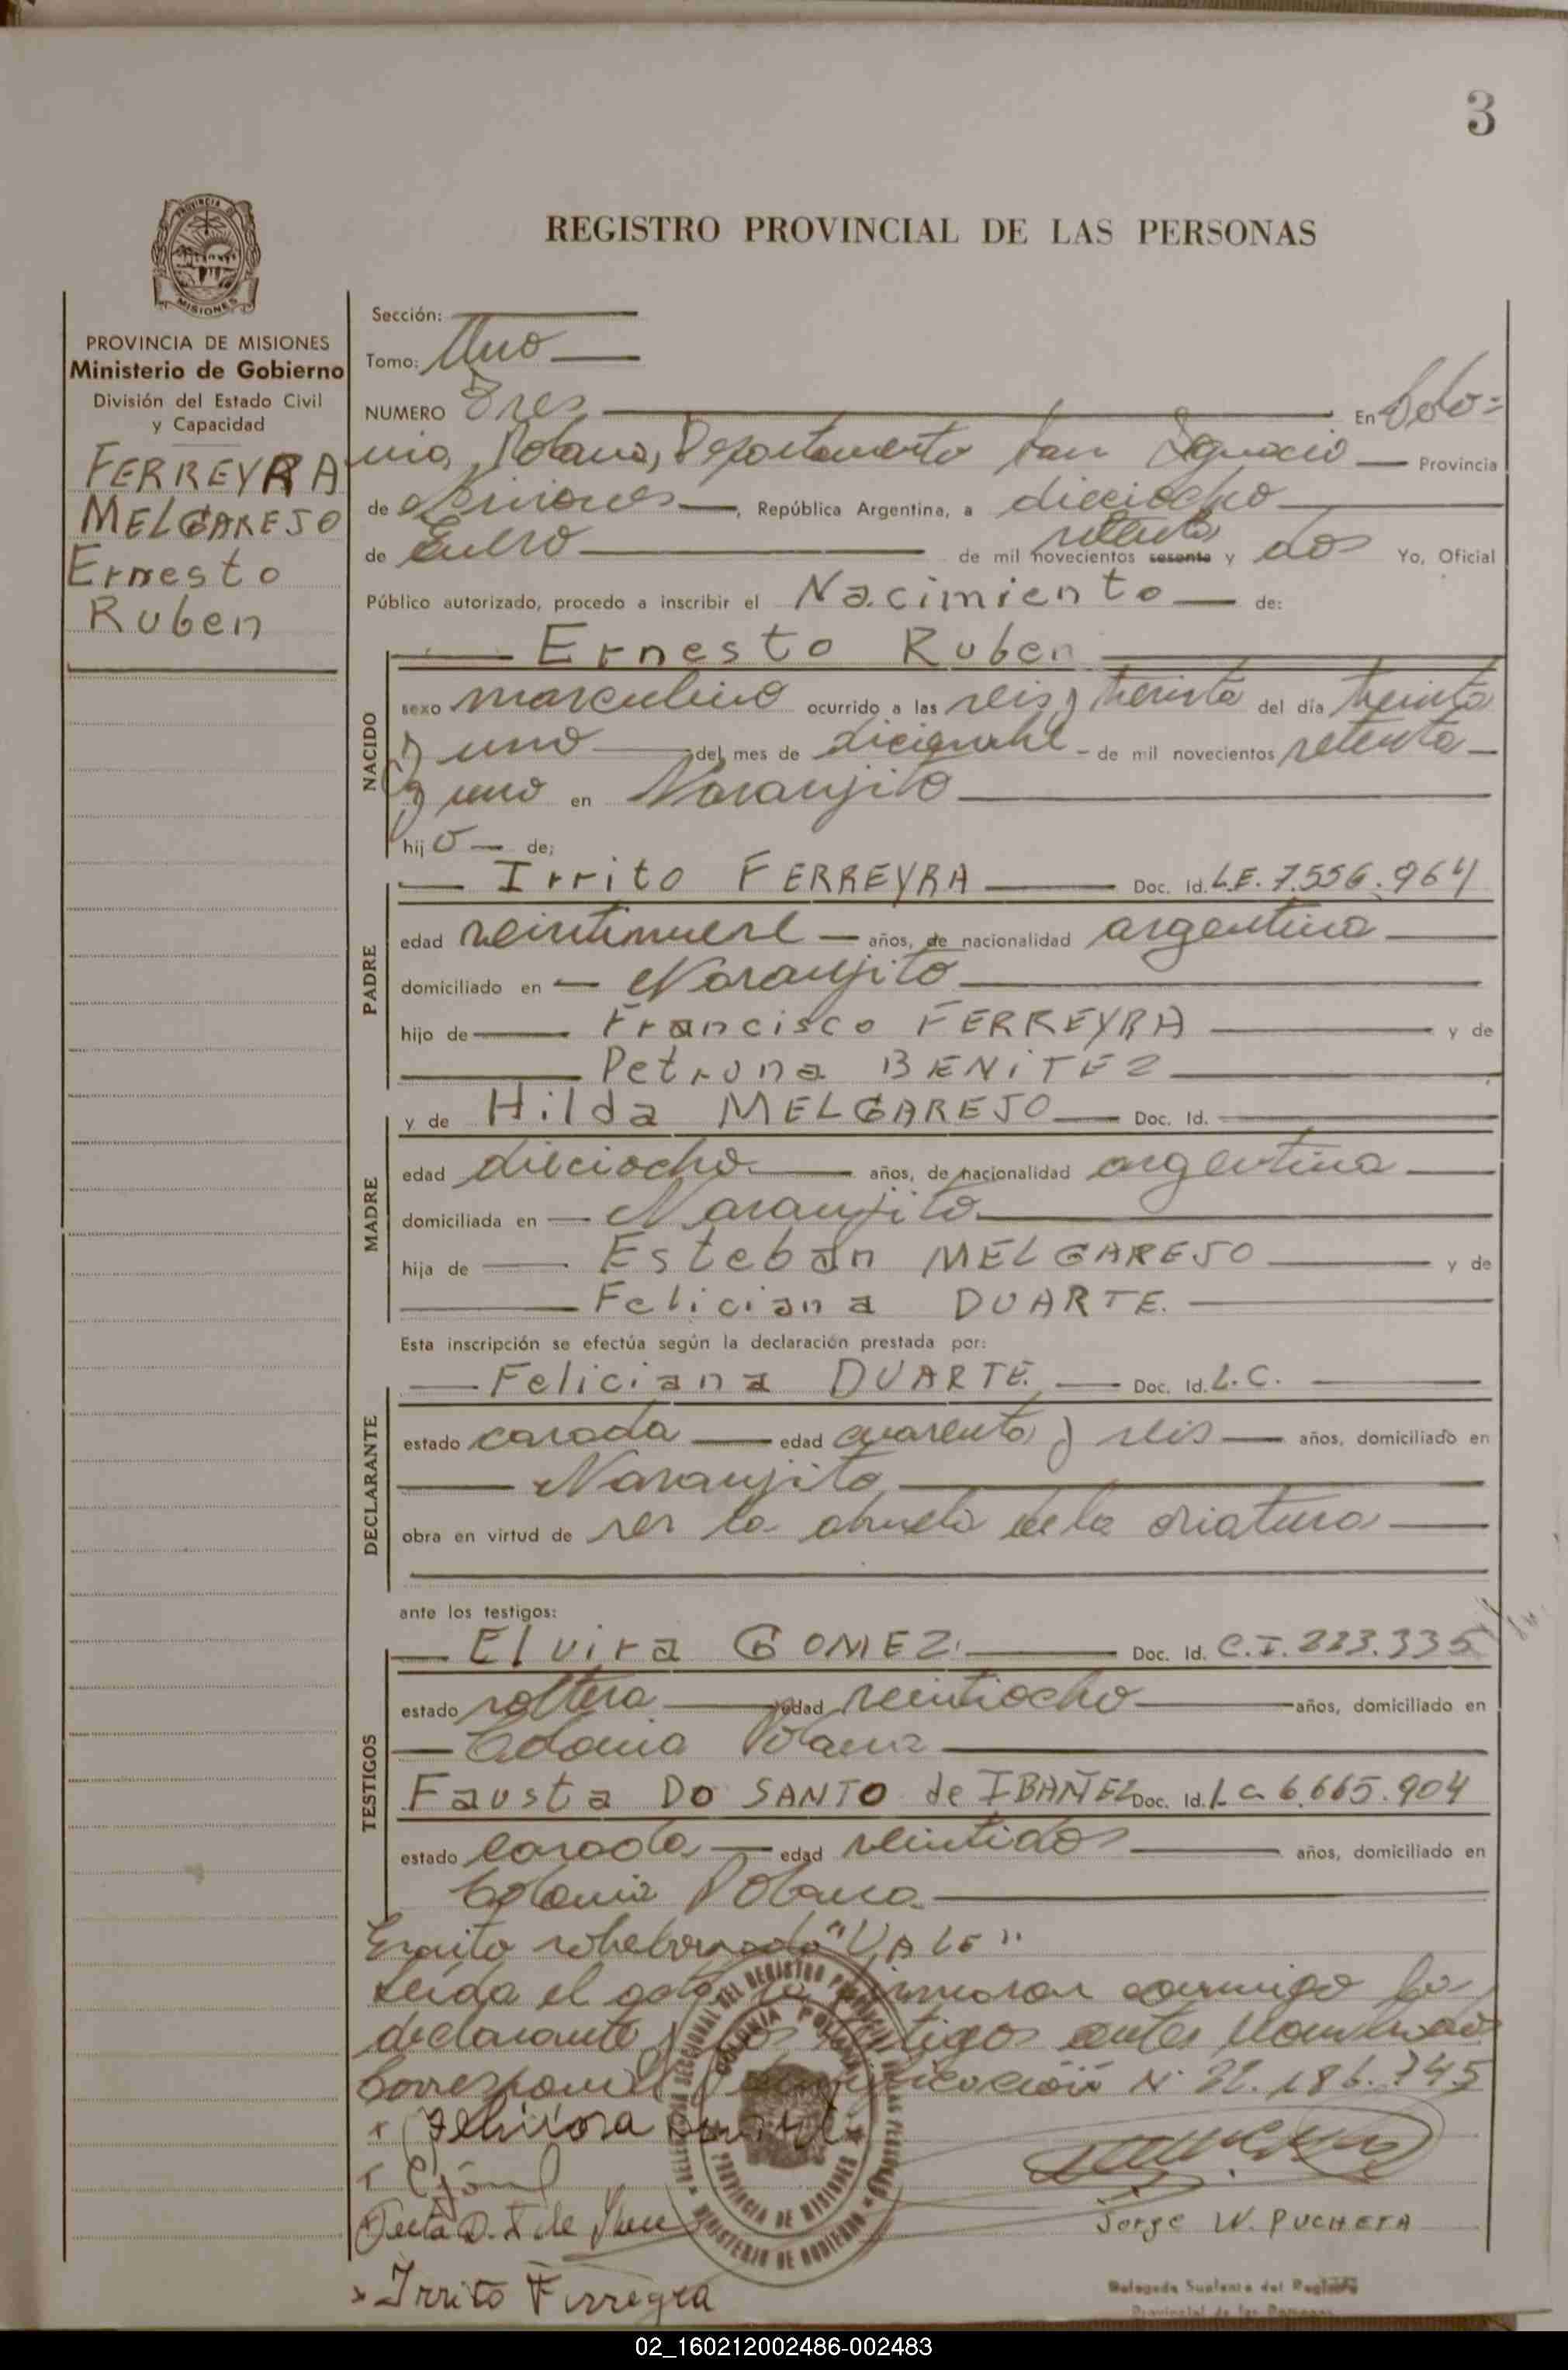 3
REGISTRO PROVINCIAL DE LAS PERSONAS
MISIONES
PROVINCIA DE MISIONES
Ministerio de Gobierno
División del Estado Civil
y Capacidad
FERREYRA
MELGAREJO
Ernesto
Ruben
Sección:
Tomo: Uno
NUMERO Tres En Colo=
nia Polana, Departamento San Ignacio Provincia
de Misiones, República Argentina, a dieciocho
setenta
de Enero de mil novecientos sesenta y dos Yo, Oficial
Público autorizado, procedo a inscribir el Nacimiento de:
Ernesto Ruben
NACIDO
sexo masculino ocurrido a las seis y treinta del día treinta
y uno del mes de diciembre de mil novecientos setenta
y uno en Naranjito
hijo de:
PADRE
Irrito FERREYRA Doc. Id. L.E. 7.556.964
edad veintinueve años, de nacionalidad argentina
domiciliado en Naranjito
hijo de Francisco FERREYRA y de
Petrona BENITEZ
MADRE
y de Hilda MELGAREJO Doc. Id.
edad dieciocho años, de nacionalidad argentina
domiciliada en Naranjito
hija de Esteban MELGAREJO y de
Feliciana DUARTE.
Esta inscripción se efectúa según la declaración prestada por:
DECLARANTE
Feliciana DUARTE. Doc. Id. L.C.
estado casada edad cuarenta y seis años, domiciliado en
Naranjito
obra en virtud de ser la abuela de la criatura
ante los testigos:
TESTIGOS
Elvira GOMEZ Doc. Id. C.I. 223.335
estado soltera edad veintiocho años, domiciliado en
Colonia Polana
Fausta DO SANTO de IBAÑEZ Doc. Id. L.C. 6.665.904
estado casada edad veintidos años, domiciliado en
Colonia Polana
Escrito sobeborrado "VALE"
Leída el acta la firmaron conmigo la
declarante y los testigos antes nombrados
Corresponde identificación N° 22.186.745
Jorge W. PUCHETA
x Irrito Ferreyra
Delegado Suplente del Registro
Provincial de las Personas
DELEGACION SECCIONAL DEL REGISTRO PROVINCIAL DE LAS PERSONAS
COLONIA POLANA
PROVINCIA DE MISIONES
MINISTERIO DE GOBIERNO
02_160212002486-002483